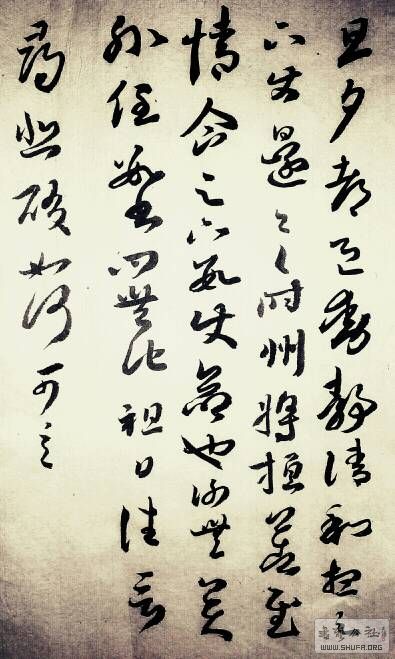 旦夕都邑動静清和想足
下使還一一时州將桓公告慰
情企足下數使命也謝無奕
外任數書問無他祖日往言
尋悲酸如何可言
WWW.SHUFA.ORG